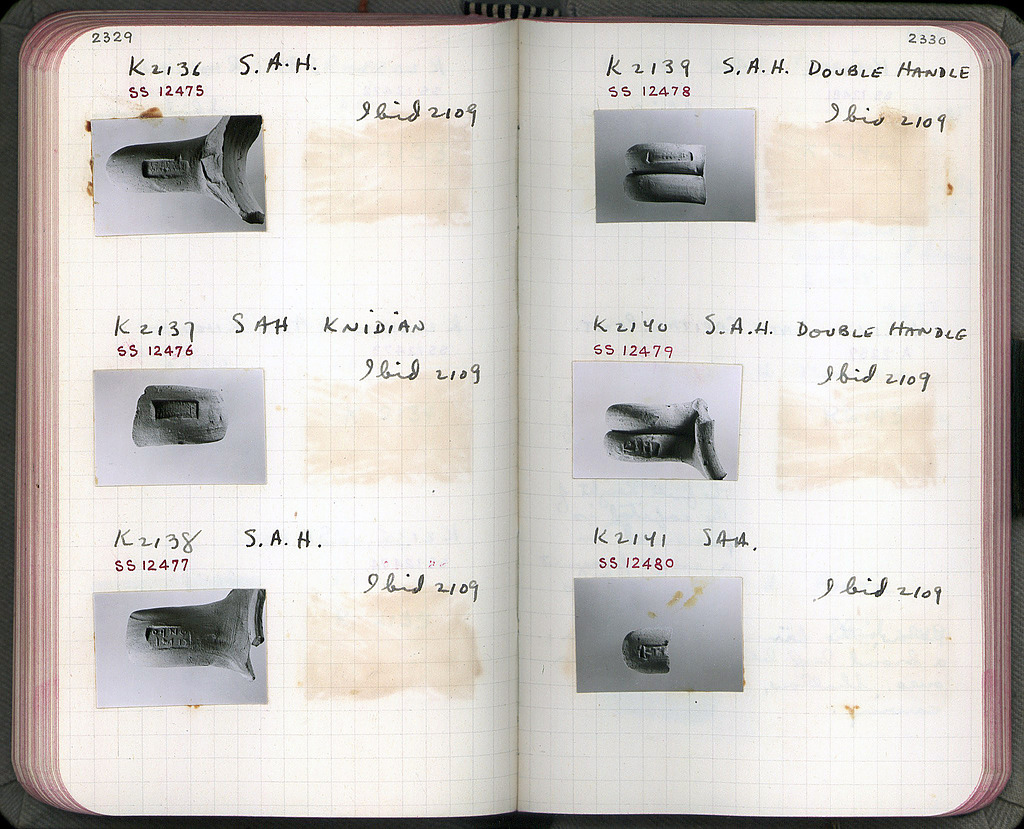 2329
K 2136 S.A.H.
SS 12475
Ibid 2109
K 2137 SAH KNIDIAN
SS 12476
Ibid 2109
K 2138 S.A.H.
SS 12477
Ibid 2109
2330
K 2139 S.A.H. DOUBLE HANDLE
SS 12478
Ibid 2109
K 2140 S.A.H. DOUBLE HANDLE
SS 12479
Ibid 2109
K 2141 SAH.
SS 12480
Ibid 2109